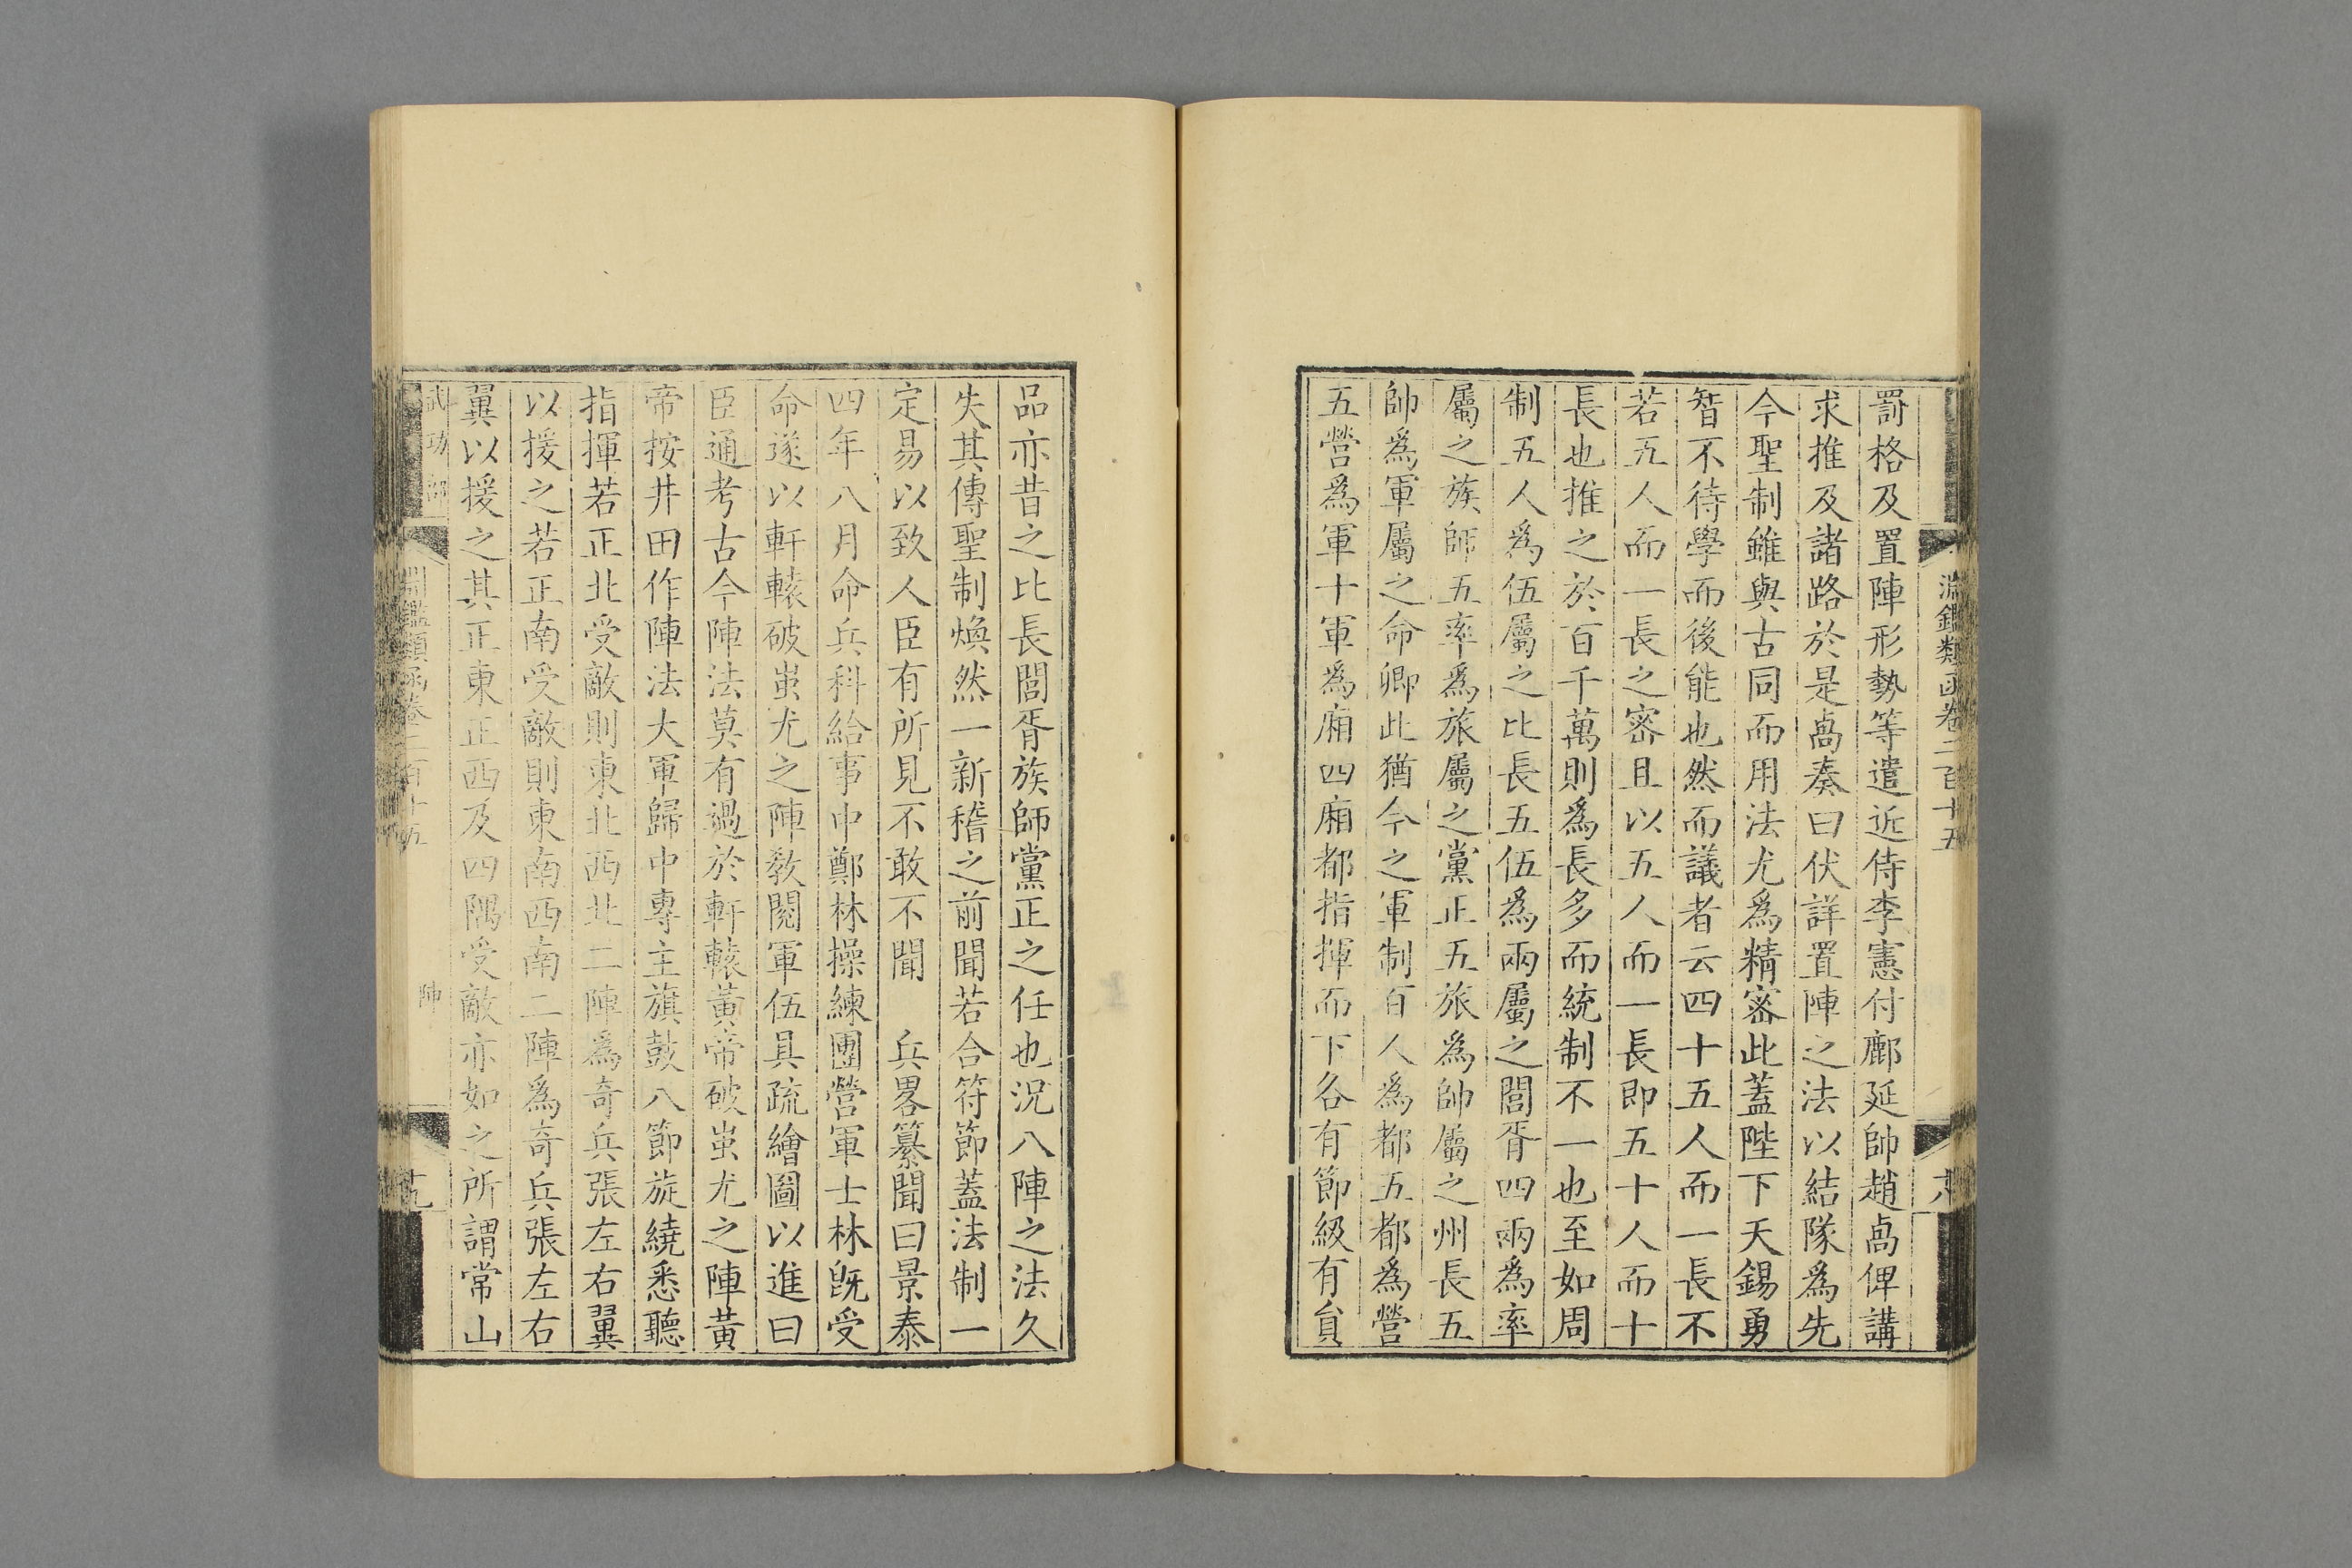 淵鑑類函卷二百十五
罰格及置陣形勢等遣近侍李憲付鄜延帥趙卨俾講
求推及諸路於是卨奏曰伏詳置陣之法以結隊爲先
今聖制雖與古同而用法尤爲精密此蓋陛下天錫勇
智不待學而後能也然而議者云四十五人而一長不
若五人而一長之密且以五人而一長即五十人而十
長也推之於百千萬則爲長多而統制不一也至如周
制五人爲伍屬之比長五伍爲兩屬之閭胥四兩爲率
屬之族師五率爲旅屬之黨正五旅爲帥屬之州長五
帥爲軍屬之命卿此猶今之軍制百人爲都五都爲營
五營爲軍十軍爲廂四廂都指揮而下各有節級有員
品亦昔之比長閭胥族師黨正之任也況八陣之法久
失其傳聖制煥然一新稽之前聞若合符節蓋法制一
定易以致人臣有所見不敢不聞　兵畧纂聞曰景泰
四年八月命兵科給事中鄭林操練團營軍士林旣受
命遂以軒轅破蚩尤之陣教閱軍伍具疏繪圖以進曰
臣通考古今陣法莫有過於軒轅黃帝破蚩尤之陣黃
帝按井田作陣法大軍歸中專主旗鼓八節旋繞悉聽
指揮若正北受敵則東北西北二陣爲奇兵張左右翼
以援之若正南受敵則東南西南二陣爲奇兵張左右
翼以援之其正東正西及四隅受敵亦如之所謂常山
武功部
淵鑑類函卷二百十五
陣
十九